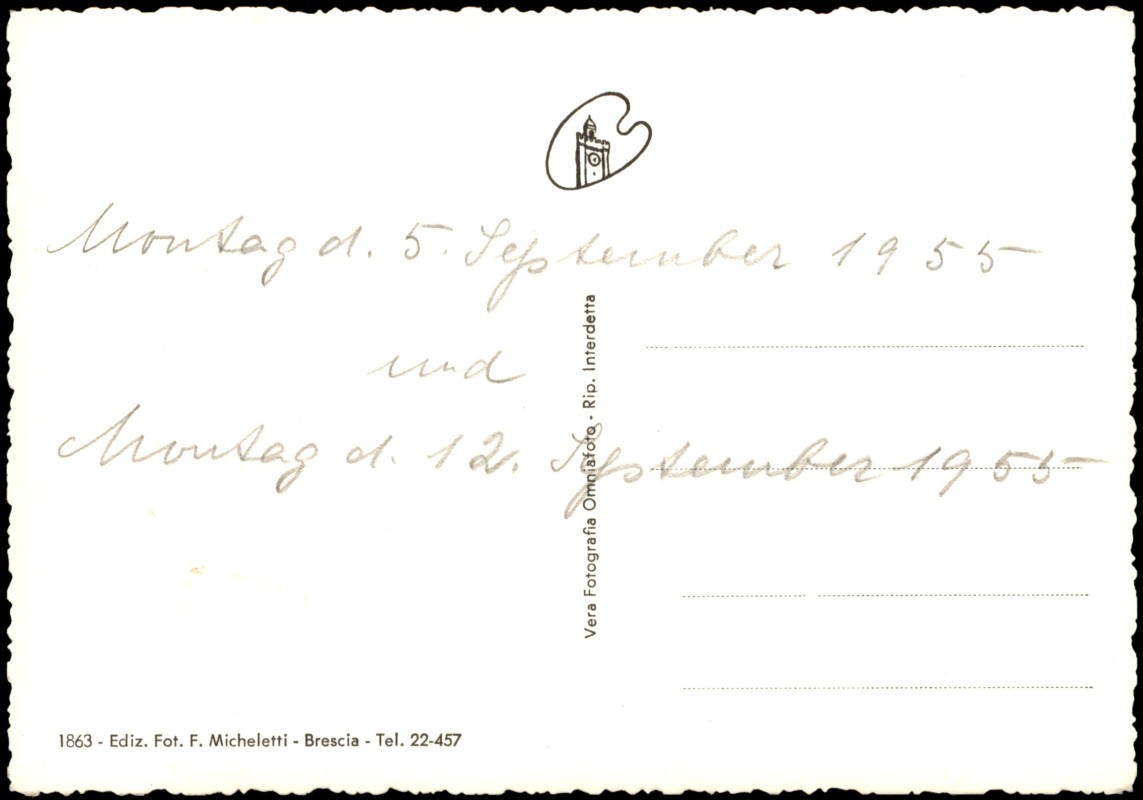 Montag d. 5. September 1955
und
Montag d. 12. September 1955
Vera Fotografia Omniafoto - Rip. Interdetta
1863 - Ediz. Fot. F. Micheletti - Brescia - Tel. 22-457